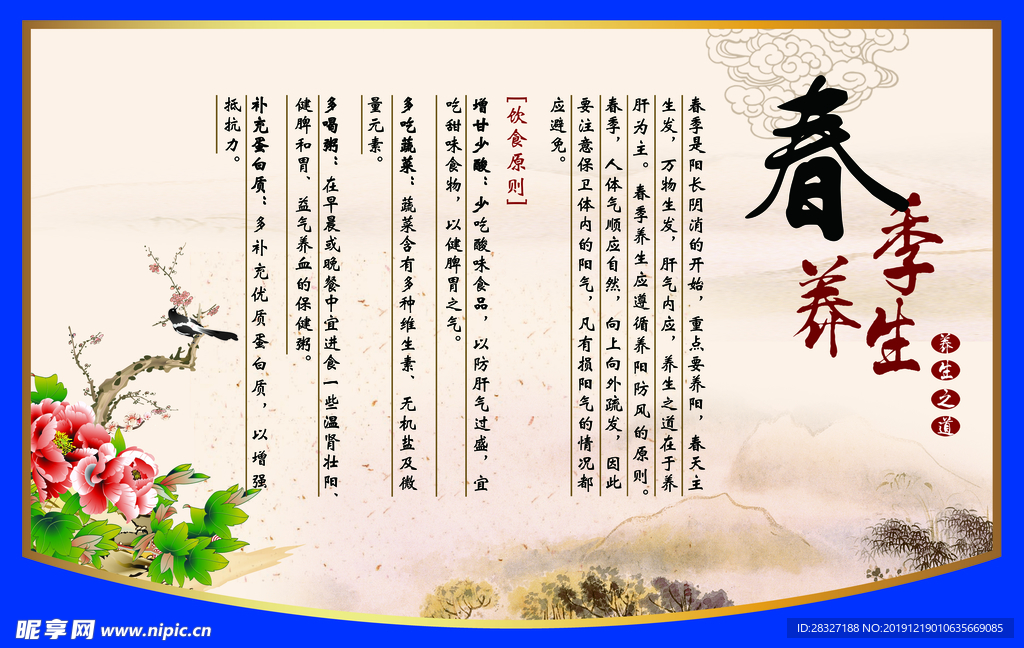 春季养生
养生之道
春季是阳长阴消的开始，重点要养阳，春天主
生发，万物生发，肝气内应，养生之道在于养
肝为主。春季养生应遵循养阳防风的原则。
春季，人体气顺应自然，向上向外疏发，因此
要注意保卫体内的阳气，凡有损阳气的情况都
应避免。
[饮食原则]
增甘少酸：少吃酸味食品，以防肝气过盛，宜
吃甜味食物，以健脾胃之气。
多吃蔬菜：蔬菜含有多种维生素、无机盐及微
量元素。
多喝粥：在早晨或晚餐中宜进食一些温肾壮阳、
健脾和胃、益气养血的保健粥。
补充蛋白质：多补充优质蛋白质，以增强
抵抗力。
昵享网 www.nipic.cn
ID:28327188 NO:20191219010635669085